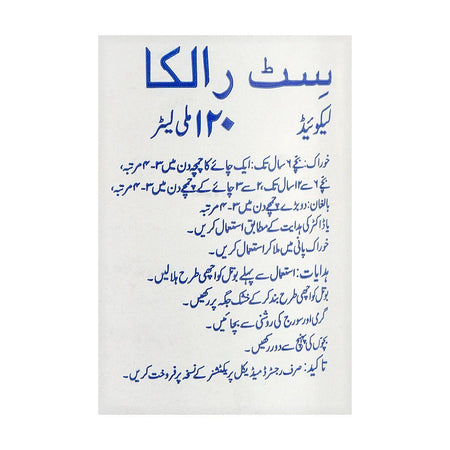 سِٹ رالکا
لیکوئیڈ ۱۲۰ ملی لیٹر
خوراک: بچے ۶ سال تک: ایک چائے کا چمچہ دن میں ۳-۴ مرتبہ،
بچے ۶ سے ۱۲ سال تک، ۲ سے ۳ چائے کے چمچے دن میں ۳-۴ مرتبہ،
بالغان: دو بڑے چمچے دن میں ۳-۴ مرتبہ
یا ڈاکٹر کی ہدایت کے مطابق استعمال کریں۔
خوراک پانی میں ملا کر استعمال کریں۔
ہدایات: استعمال سے پہلے بوتل کو اچھی طرح ہلالیں۔
بوتل کو اچھی طرح بند کر کے خشک جگہ پر رکھیں۔
گرمی اور سورج کی روشنی سے بچائیں۔
بچوں کی پہنچ سے دور رکھیں۔
تاکید: صرف رجسٹرڈ میڈیکل پریکٹشنر کے نسخہ پر فروخت کریں۔